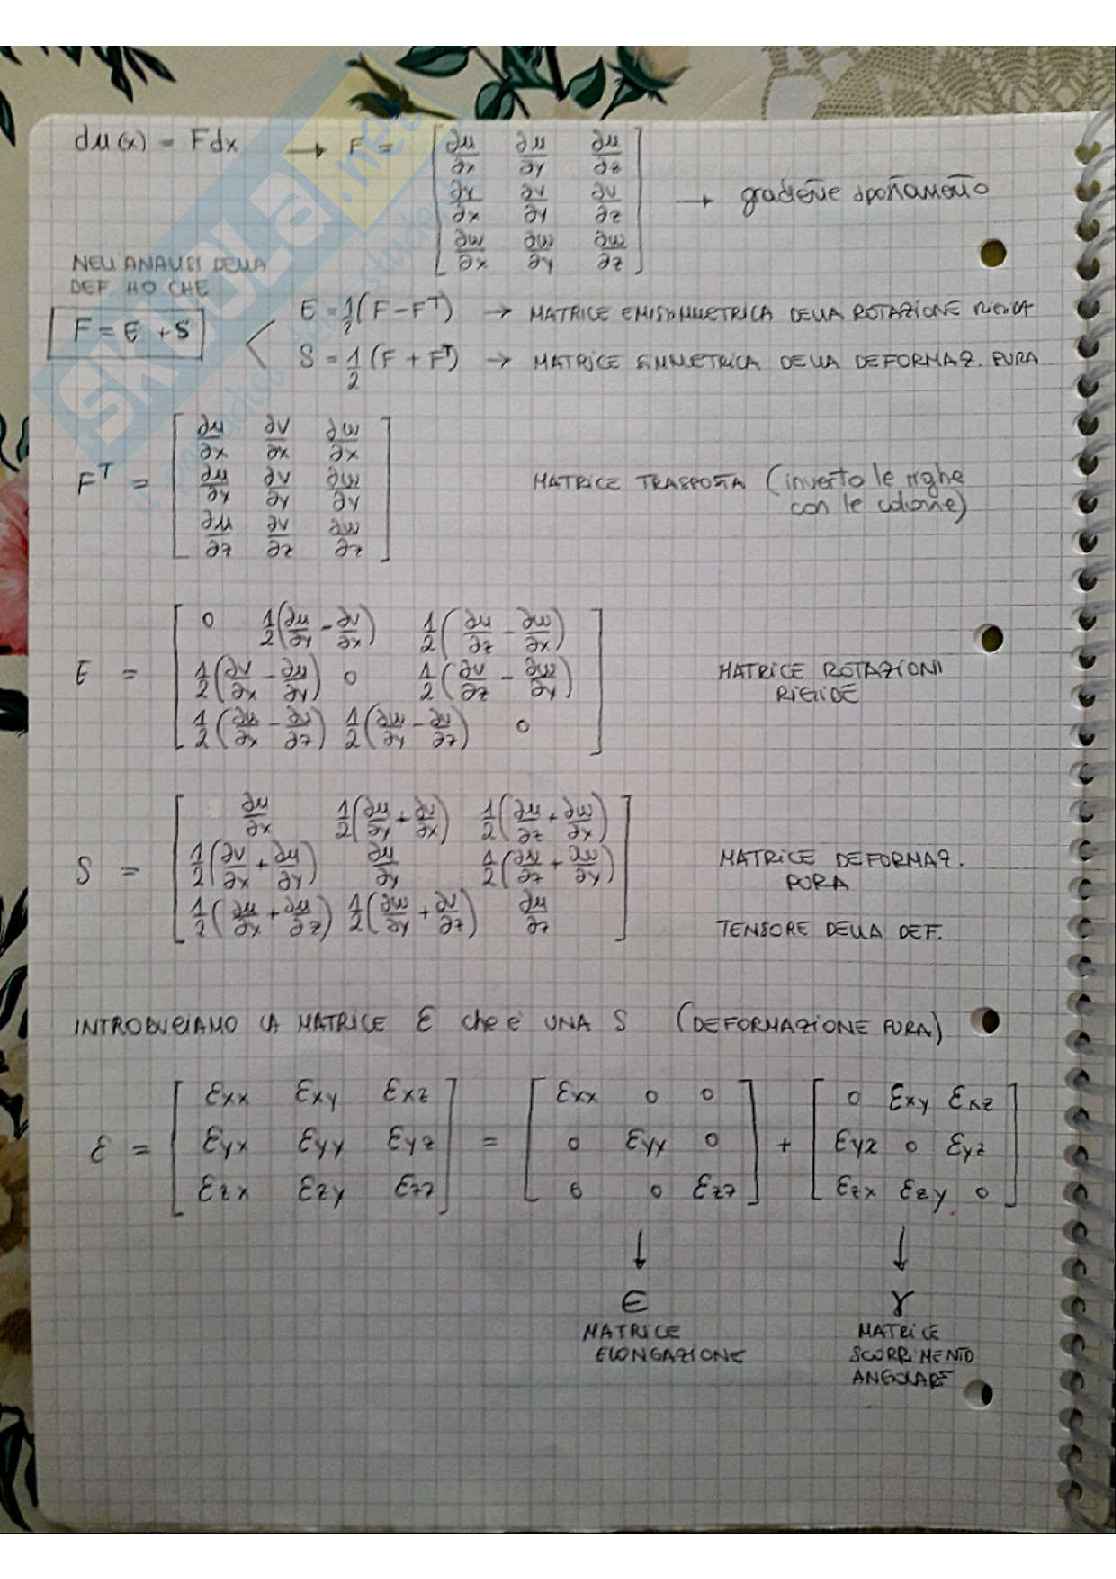 du(x) = Fdx → F = [ ∂u/∂x ∂u/∂y ∂u/∂z
∂v/∂x ∂v/∂y ∂v/∂z
∂w/∂x ∂w/∂y ∂w/∂z ] → gradiente spostamento
NELL'ANALISI DELLA
DEF HO CHE
F = E + S
E = 1/2 (F - F^T) → MATRICE EMISIMMETRICA DELLA ROTAZIONE RIGIDA
S = 1/2 (F + F^T) → MATRICE SIMMETRICA DELLA DEFORMAZ. PURA
F^T = [ ∂u/∂x ∂v/∂x ∂w/∂x
∂u/∂y ∂v/∂y ∂w/∂y
∂u/∂z ∂v/∂z ∂w/∂z ]
MATRICE TRASPOSTA (inverto le righe
con le colonne)
E = [ 0 1/2(∂u/∂y - ∂v/∂x) 1/2(∂u/∂z - ∂w/∂x)
1/2(∂v/∂x - ∂u/∂y) 0 1/2(∂v/∂z - ∂w/∂y)
1/2(∂w/∂x - ∂u/∂z) 1/2(∂w/∂y - ∂v/∂z) 0 ]
MATRICE ROTAZIONI
RIGIDE
S = [ ∂u/∂x 1/2(∂u/∂y + ∂v/∂x) 1/2(∂u/∂z + ∂w/∂x)
1/2(∂v/∂x + ∂u/∂y) ∂u/∂y 1/2(∂u/∂z + ∂w/∂y)
1/2(∂u/∂x + ∂u/∂z) 1/2(∂w/∂y + ∂v/∂z) ∂u/∂z ]
MATRICE DEFORMAZ.
PURA
TENSORE DELLA DEF.
INTRODUCIAMO LA MATRICE Ɛ che è UNA S (DEFORMAZIONE PURA)
Ɛ = [ Ɛxx Ɛxy Ɛxz
Ɛyx Ɛyy Ɛyz
Ɛzx Ɛzy Ɛzz ] = [ Ɛxx 0 0
0 Ɛyy 0
0 0 Ɛzz ] + [ 0 Ɛxy Ɛxz
Ɛyz 0 Ɛyz
Ɛzx Ɛzy 0 ]
↓ ↓
∈ γ
MATRICE
ELONGAZIONE
MATRICE
SCORRIMENTO
ANGOLARE
skuola.net